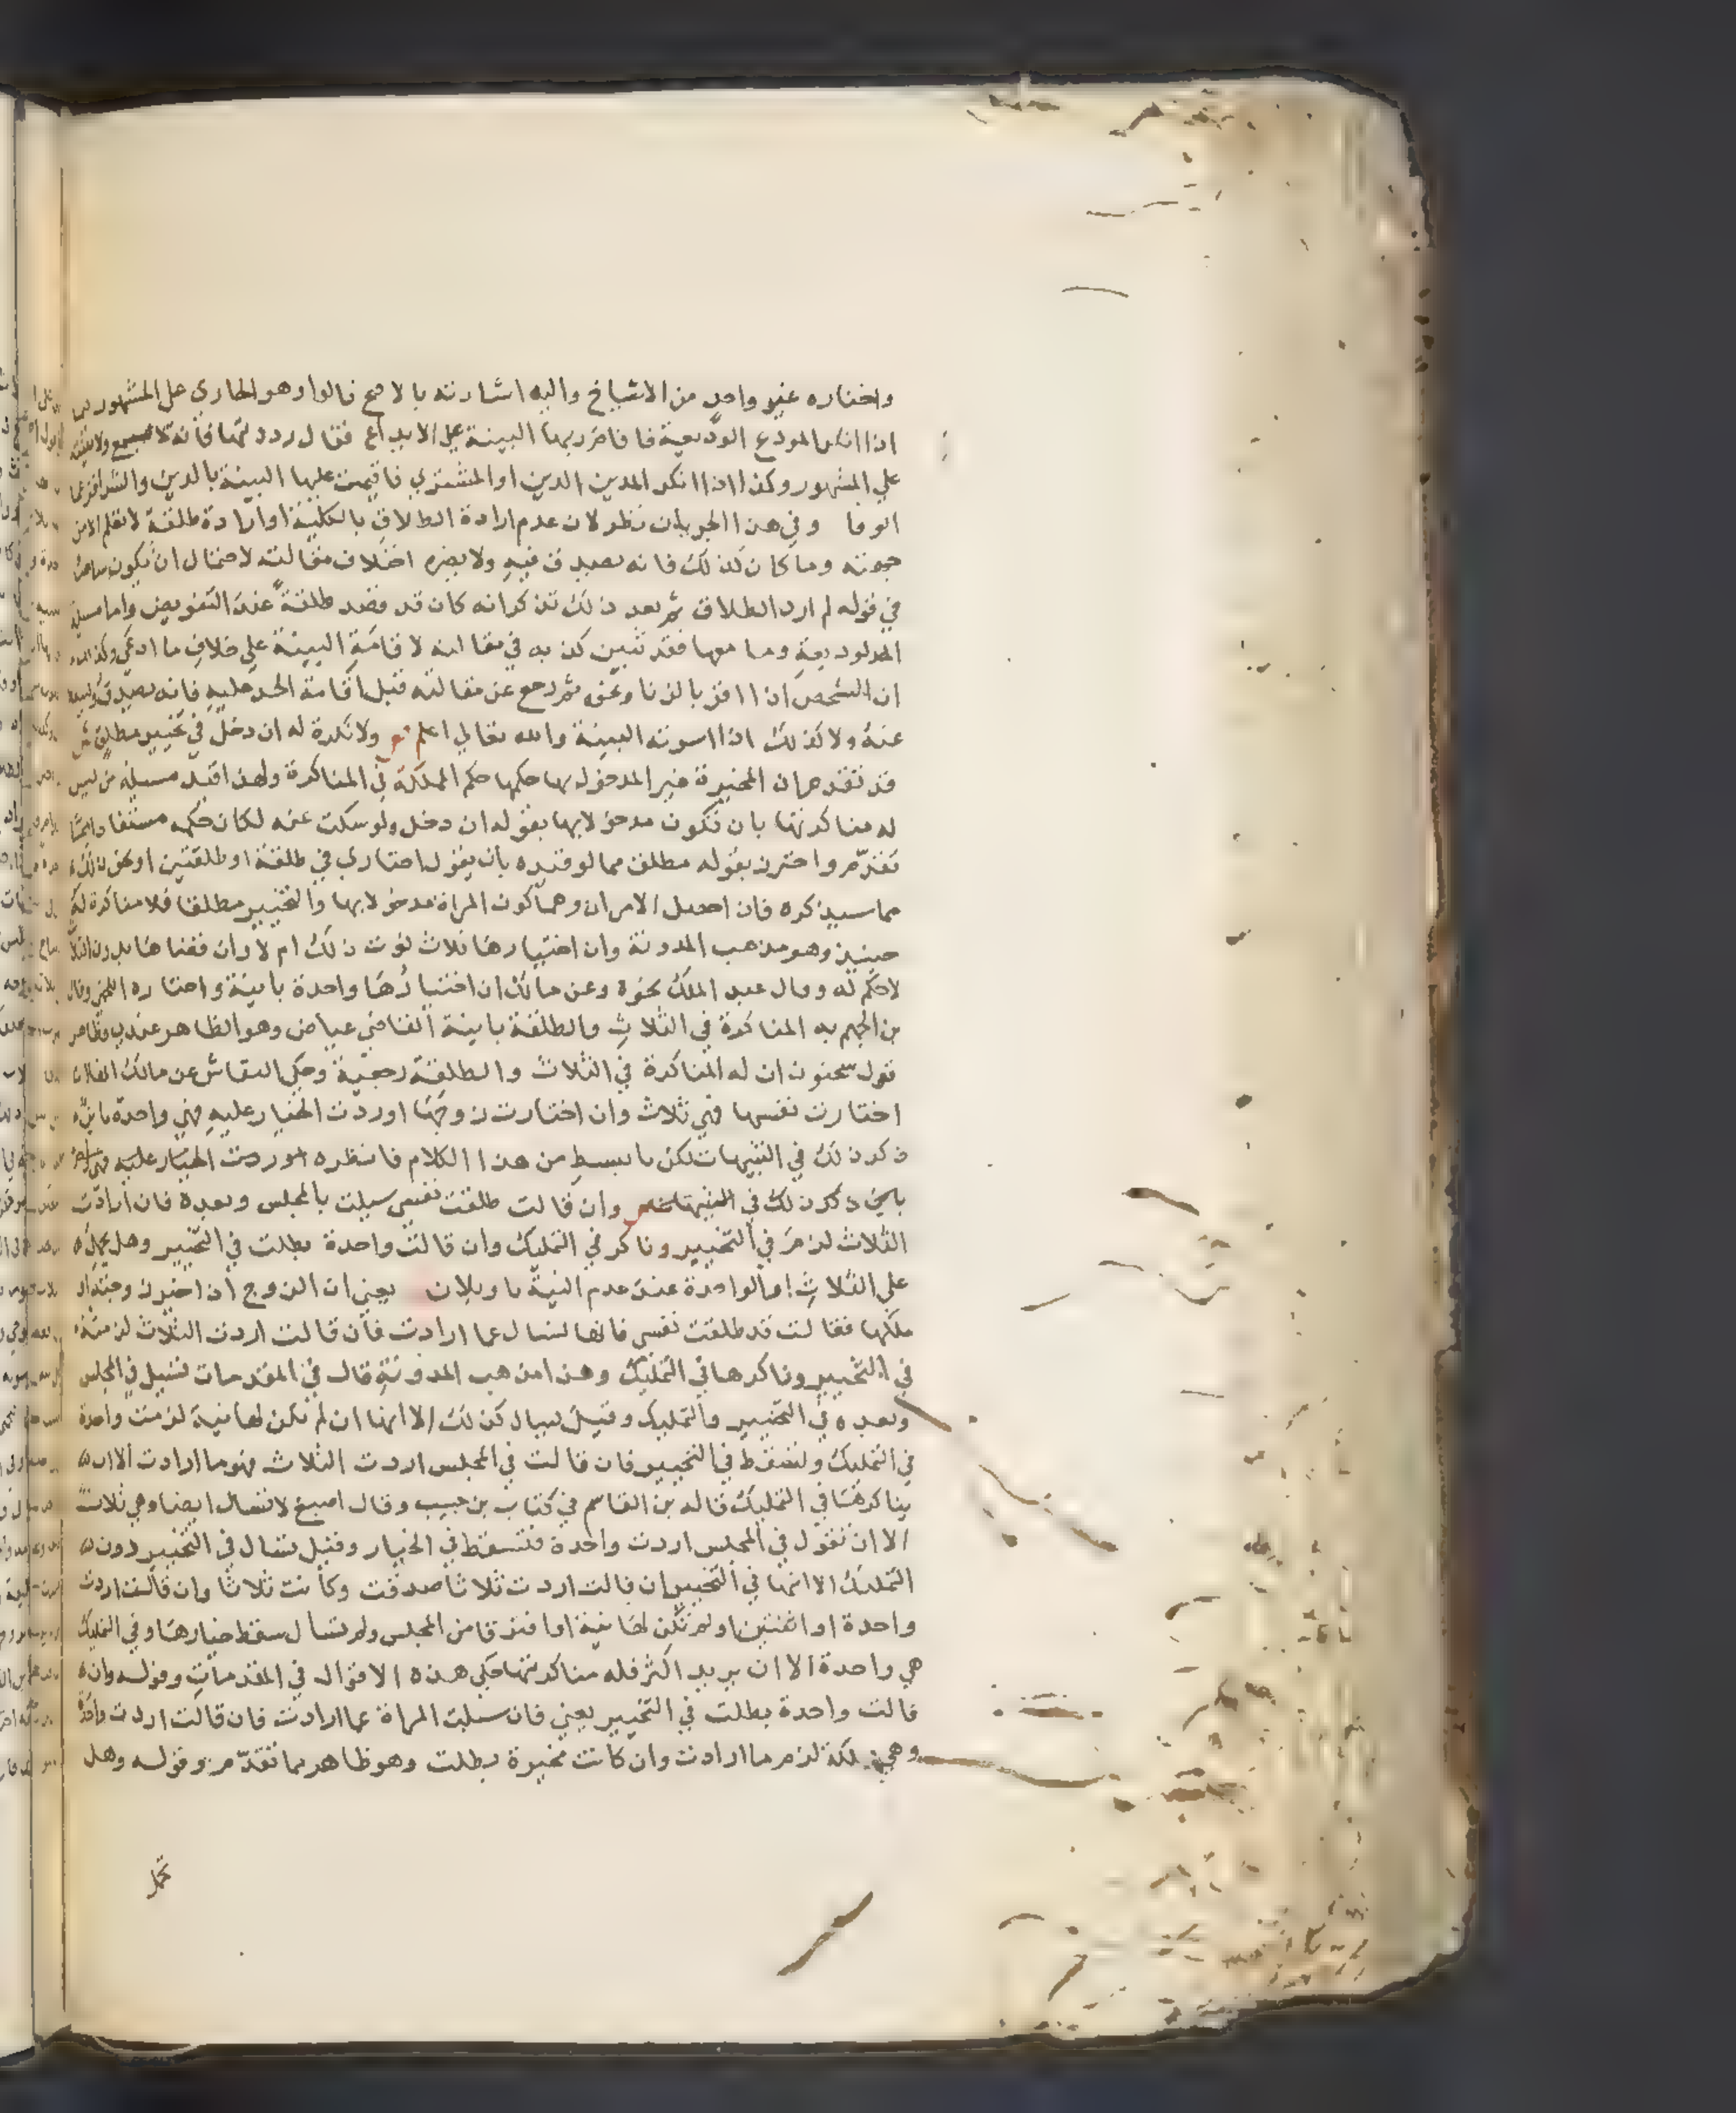 واختاره غير واحد من الاشياخ واليه اشارته بالاصح قالوا وهو الجاري على المشهور
اذا انكر المودع الوديعة فاقام ربها البينة على الايداع فقال رددتها فانه لا
على المشهور وكذا اذا انكر المدين الدين او المشتري فاقيمت عليها البينة بالدين والشرا
الوفا وفي هذا الجريان نظر لان عدم ارادة الطلاق بالكلية او ارادة طلقة لا تعلم الا من
جهته وما كان كذلك فانه يصدق فيه ولا يضره اختلاف مقالته لاحتمال ان يكون
في قوله لم ارد الطلاق ثم بعد ذلك تذكر انه كان قد قصد طلقة عند التفويض واما مسيلة
وما معها فقد تبين كذبه في مقالته لاقامة البينة على خلاف ما ادعى
ان الشخص اذا اقر بالزنا ونحوه ثم رجع عن مقالته قبل اقامة الحد عليه فانه يصدق
عنه ولا كذلك اذا اسرته البينة والله تعالى اعلم ولا نكرة له ان دخل في تخيير مطلق
قد تقدم ان المخيرة غير المدخول بها حكمها حكم المملكة في المناكرة ولهذا قيد مسيلة من ليس
له مناكرتها بان تكون مدخولا بها بقوله ان دخل ولو سكت عنه لكان حكمه مستفادا مما
تقدم واحترز بقوله مطلق مما لو قيده بان يقول اختاري في طلقة او طلقتين او نحو ذلك
مما سيذكره فان احصل الامران وهما كون المراة مدخولا بها والتخيير مطلقا فلا مناكرة له
حينيذ وهو مذهب المدونة وان اختيارها ثلاث نوت ذلك ام لا وان قضاها بدون الثلاث
لا حكم له وقال عبد الملك نحوه وعن مالك ان اختيارها واحدة باينة واختاره اللخمي وقال
بن الجهم به المناكرة في الثلاث والطلقة باينة القاضي عياض وهو الظاهر عندي
قول سحنون ان له المناكرة في الثلاث والطلقة رجعية وحكى النقاش عن مالك
اختارت نفسها فهي ثلاث وان اختارت زوجها او ردت الخيار عليه فهي واحدة باينة
ذكر ذلك في التنبيهات لكن بابسط من هذا الكلام فانظره او ردت الخيار عليه
ذكر ذلك في التنبيهات وان قالت طلقت نفسي سيلت بالمجلس وبعده فان ارادت
الثلاث لزمت في التخيير وناكر في التمليك وان قالت واحدة بطلت في التخيير وهل يحمل
على الثلاث او الواحدة عند عدم النية تاويلان يعني ان الزوج اذا خير زوجته او
ملكها فقالت قد طلقت نفسي فانها تسال عما ارادت فان قالت اردت الثلاث لزمته
في التخيير وناكرها في التمليك وهذا مذهب المدونة قال في المقدمات تسيل في المجلس
وبعده في التخيير والتمليك وقيل تسال كذلك الا انها ان لم تكن لها نية لزمت واحدة
في التمليك وتسقط في التخيير فان قالت في المجلس اردت الثلاث فهو ما ارادت الا ان
يناكرها في التمليك قاله بن القاسم في كتاب بن حبيب وقال اصبغ لا تسال ايضا وهي ثلاث
الا ان تقول في المجلس اردت واحدة فتسقط في الخيار وقيل تسال في التخيير دون
التمليك الا انها في التخيير ان قالت اردت ثلاثا صدقت وكانت ثلاثا وان قالت اردت
واحدة او اثنتين او لم تكن لها نية او افترقا من المجلس ولم تسال سقط خيارها وفي التمليك
هي واحدة الا ان يريد اكثر فله مناكرتها حكى هذه الاقوال في المقدمات وقوله وان
قالت واحدة بطلت في التخيير يعني فان سيلت المراة عما ارادت فان قالت اردت واحدة
وهي مملكة لزم ما ارادت وان كانت مخيرة بطلت وهو ظاهر مما تقدم وقوله وهل
تحمل